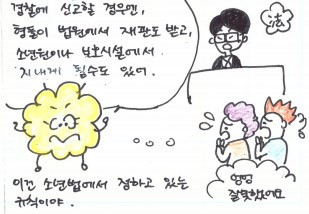 경찰에 신고할 경우엔,
형들이 법원에서 재판도 받고,
소년원이나 보호시설에서
지내게 될수도 있어.
法
엉엉
잘못했어요
이건 소년법에서 정하고 있는
규칙이야.